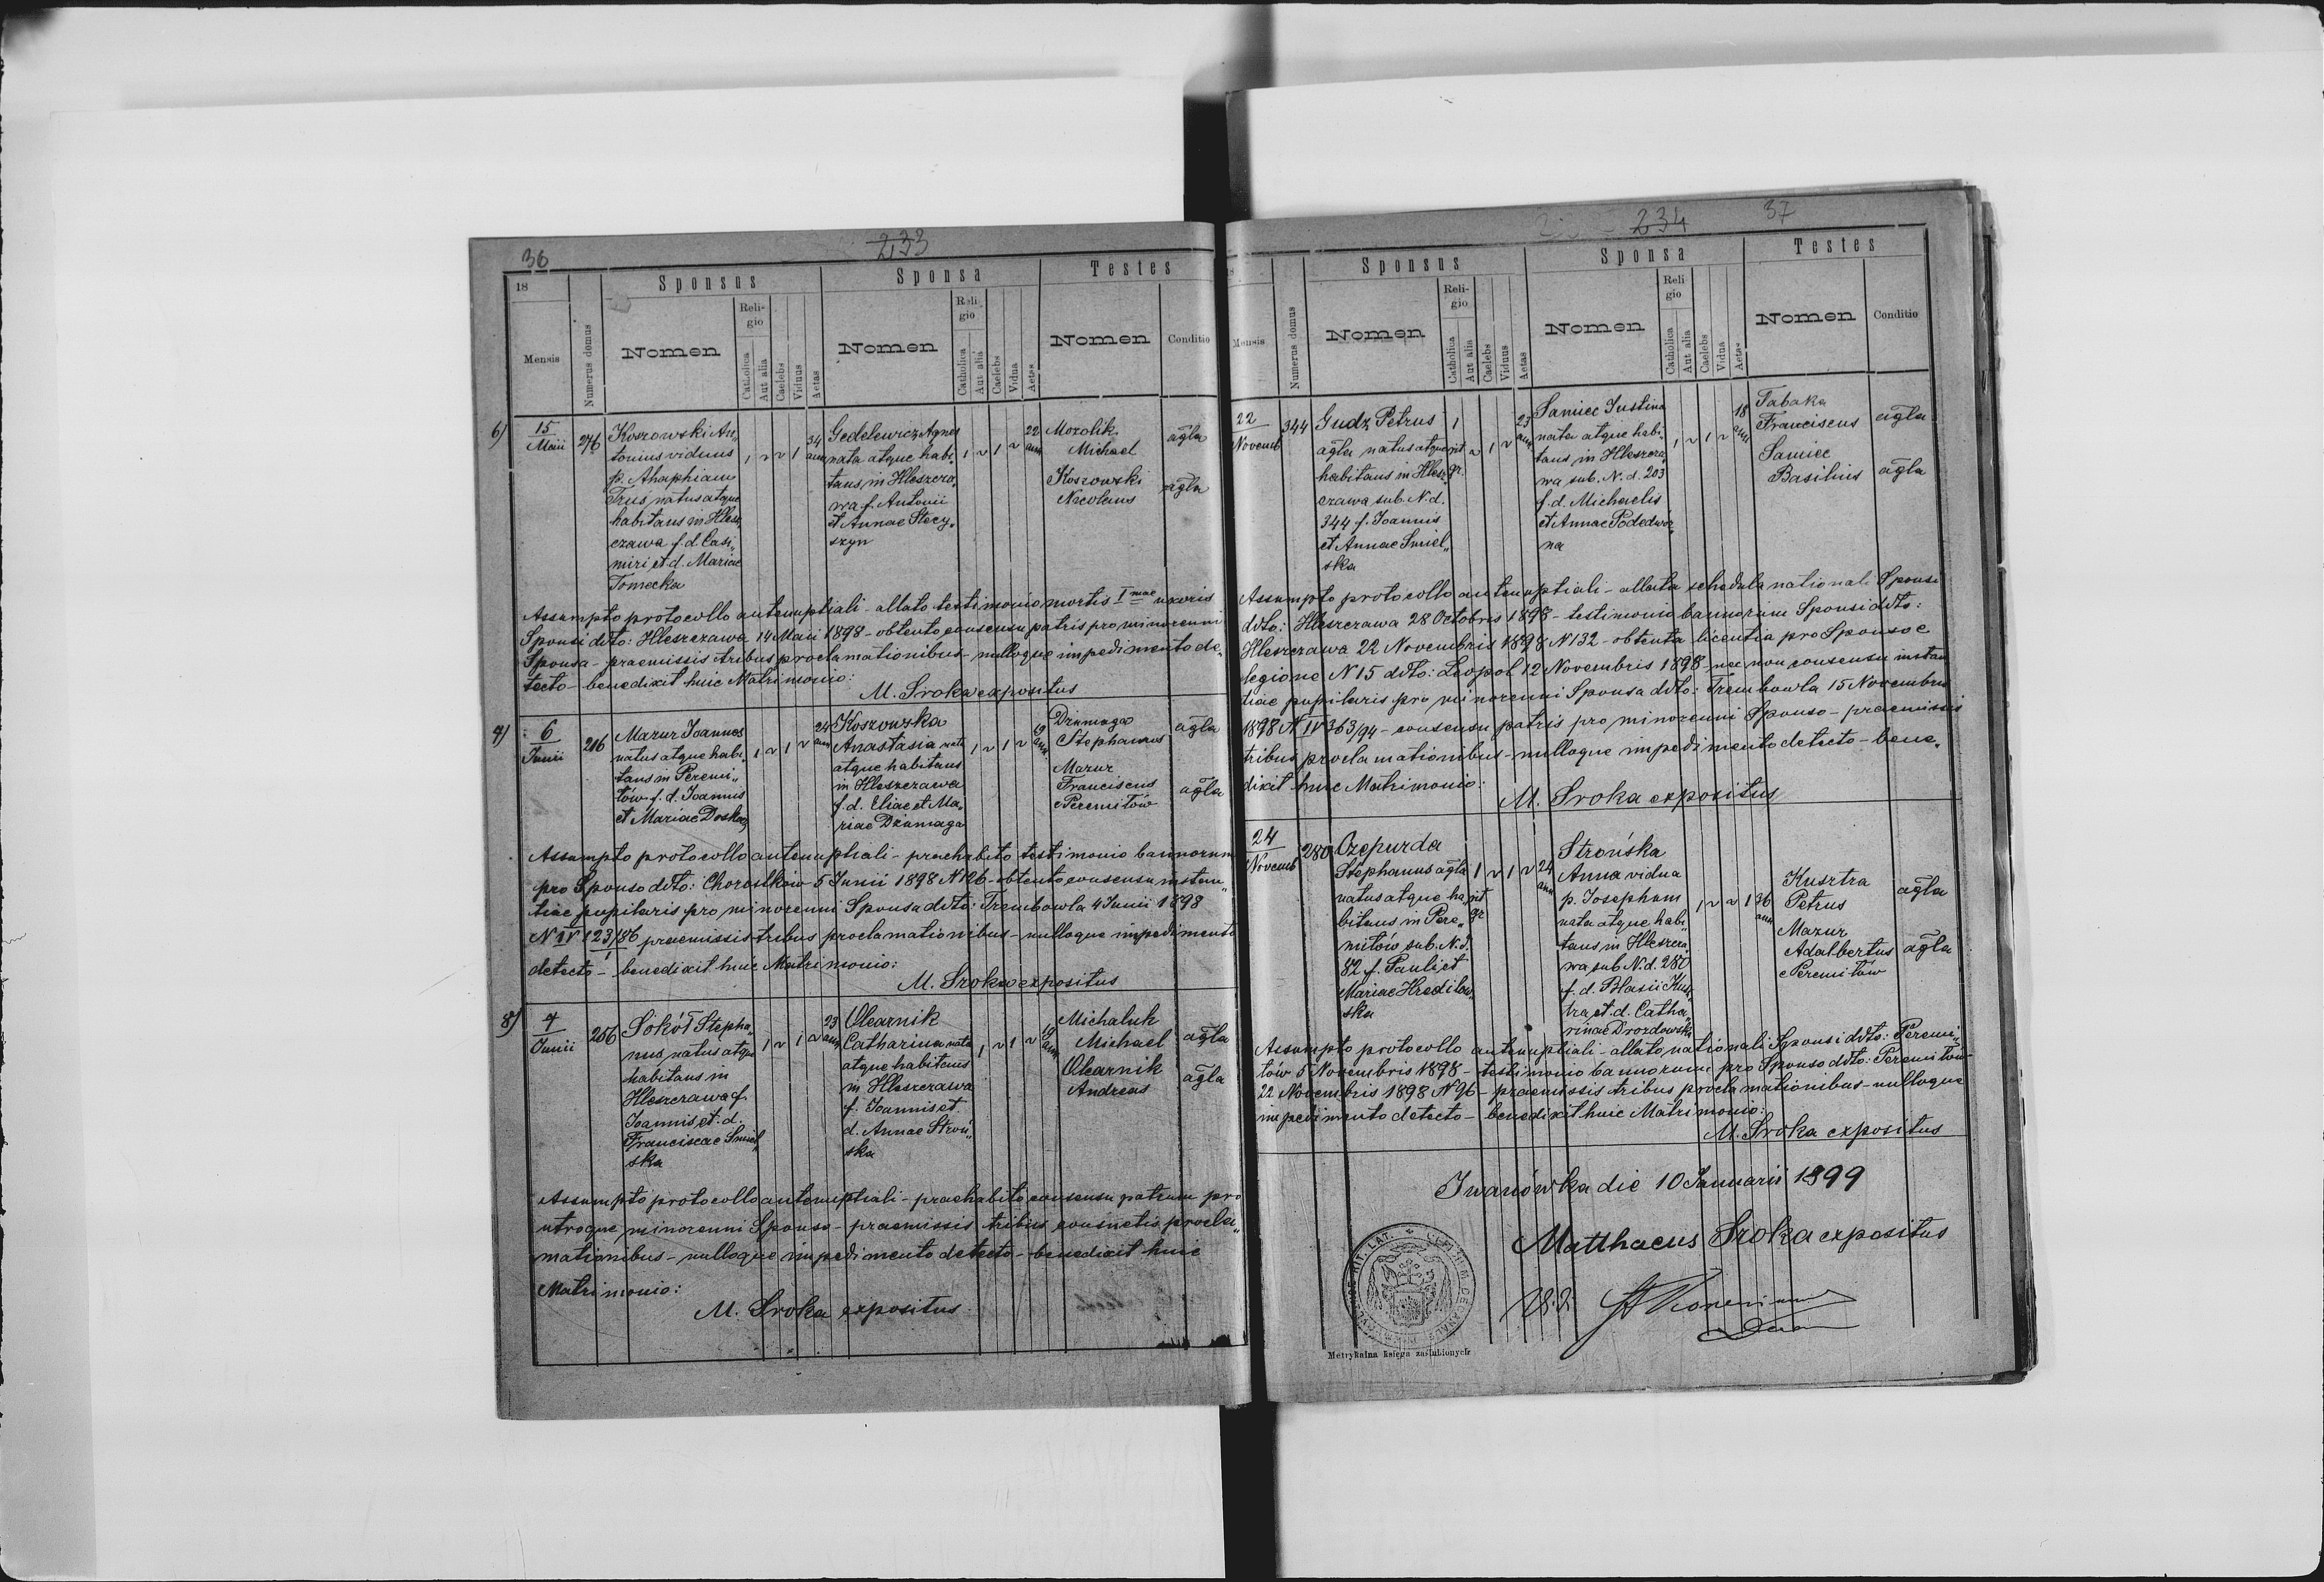 36
233
18
Sponsus
Sponsa
Testes
Mensis
Numerus domus
Nomen
Religio
Catholica
Aut alia
Caelebs
Viduus
Aetas
Nomen
Religio
Catholica
Aut alia
Caelebs
Vidua
Aetas
Nomen
Conditio
6)
15
Maii
276
Koszowski An„
tonius viduus
p. Ahaphiam
Trus, natus atque
habitans in Hlesz„
czawa f. d. Casi„
miri et d. Mariae
Tomecka
1 ~ ~ 1
34
ann
Gedelewicz Agnes
nata atque habi„
tans in Hleszcza„
wa f. Antonii
et Annae Stecy„
szyn
1 ~ 1 ~
22
ann
Mozolik
Michael
agla
Koszowski
Nicolaus
agla
Assumpto protocollo antenuptiali - allato testimonio mortis Imae uxoris
Sponsi ddto: Hleszczawa 14 Maii 1898 - obtento consensu patris pro minorenni
Sponsa - praemissis tribus proclamationibus - nulloque impedimento de„
tecto - benedixit huic Matrimonio:
M. Sroka expositus
7)
6
Junii
216
Mazur Joannes
natus atque habi„
tans in Peremi„
lów f. d. Joannis
et Mariae Doskocz
1 ~ 1 ~
24
ann
Koszowska
Anastasia nata
atque habitans
in Hleszczawa
f. d. Eliae et Ma„
riae Dżumaga
1 ~ 1 ~
19
ann
Dżumaga
Stephanus
agla
Mazur
Franciscus
Peremilów
agla
Assumpto protocollo antenuptiali - praehabito testimonio bannorum
pro Sponso ddto: Chorostków 5 Junii 1898 N 126 - obtento consensu instan„
tiae pupilaris pro minorenni Sponsa ddto: Trembowla 4 Junii 1898
N IV 123/86 praemissis tribus proclamationibus - nulloque impedimento
detecto - benedixit huic Matrimonio:
M. Sroka expositus
8)
7
Junii
256
Sokół Stepha„
nus natus atque
habitans in
Hleszczawa f.
Joannis et d.
Franciscae Smiel„
ska
1 ~ 1 ~
23
ann
Olearnik
Catharina nata
atque habitans
in Hleszczawa
f. Joannis et
d. Annae Stroń„
ska
1 ~ 1 ~
19
ann
Michaluk
Michael
agla
Olearnik
Andreas
agla
Assumpto protocollo antenuptiali - praehabito consensu patrum pro
utroque minorenni Sponso - praemissis tribus consuetis procla„
mationibus - nulloque impedimento detecto - benedixit huic
Matrimonio:
M. Sroka expositus
234
37
Sponsus
Sponsa
Testes
Mensis
Numerus domus
Nomen
Religio
Catholica
Aut alia
Caelebs
Viduus
Aetas
Nomen
Religio
Catholica
Aut alia
Caelebs
Vidua
Aetas
Nomen
Conditio
22
Novemb
344
Gudz Petrus
agla natus atque
habitans in Hlesz„
czawa sub. N. d.
344 f. Joannis
et Annae Smiel„
ska
1
rit
gr.
~ 1 ~
23
ann
Samiec Justina
nata atque habi„
tans in Hleszcza„
wa sub. N. d. 203
f. d. Michaelis
et Annae Podedwór„
na
1 ~ 1 ~
18
ann
Tabaka
Franciscus
agla
Samiec
Basilius
agla
Assumpto protocollo antenuptiali - allata schedula nationali Sponsi
ddto: Hleszczawa 28 Octobris 1898 - testimonio bannorum Sponsi ddto:
Hleszczawa 22 Novembris 1898 N 132 - obtenta licentia pro Sponso e
legione N 15 ddto: Leopol 12 Novembris 1898 - nec non consensu instan
tiae pupilaris pro minorenni Sponsa ddto: Trembowla 15 Novembris
1898 N IV 363/94 - consensu patris pro minorenni Sponso - praemissis
tribus proclamationibus - nulloque impedimento detecto - bene„
dixit huic Matrimonio:
M. Sroka expositus
24
Novemb
280
Czepurda
Stephanus agla
natus atque ha„
bitans in Pere„
milów sub. N. d.
82 f. Pauli et
Mariae Hredilow„
ska
1
rit
gr
~ 1 ~
24
ann
Strońska
Anna vidua
p. Josephum
nata atque habi„
tans in Hleszcza
wa sub N. d. 280
f. d. Blasii Kusz„
tra et d. Catha„
rinae Drozdowska
1 ~ ~ 1
36
ann
Kusztra
Petrus
agla
Mazur
Adalbertus
Peremilów
agla
Assumpto protocollo antenuptiali - allato nationali Sponsi ddto: Peremi„
lów 5 Novembris 1898 - testimonio bannorum pro Sponso ddto: Peremilów
22 Novembris 1898 N 96 - praemissis tribus proclamationibus - nulloque
impedimento detecto - benedixit huic Matrimonio:
M. Sroka expositus
Iwanówka die 10 Januarii 1899
Matthaeus Sroka expositus
RIT. LAT.
Metrykalna księga zaślubionych